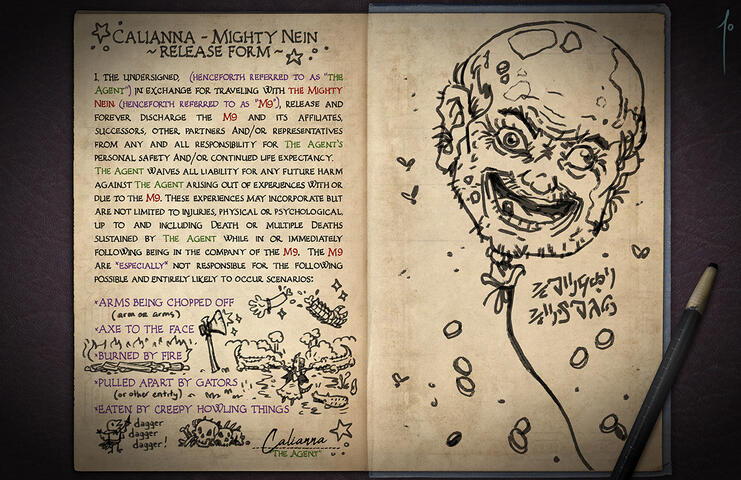 CALIANNA - MIGHTY NEIN
~ RELEASE FORM ~
I, THE UNDERSIGNED, (HENCEFORTH REFERRED TO AS "THE
AGENT") IN EXCHANGE FOR TRAVELING WITH THE MIGHTY
NEIN (HENCEFORTH REFERRED TO AS "M9"), RELEASE AND
FOREVER DISCHARGE THE M9 AND ITS AFFILIATES,
SUCCESSORS, OTHER PARTNERS AND/OR REPRESENTATIVES
FROM ANY AND ALL RESPONSIBILITY FOR THE AGENT'S
PERSONAL SAFETY AND/OR CONTINUED LIFE EXPECTANCY.
THE AGENT WAIVES ALL LIABILITY FOR ANY FUTURE HARM
AGAINST THE AGENT ARISING OUT OF EXPERIENCES WITH OR
DUE TO THE M9. THESE EXPERIENCES MAY INCORPORATE BUT
ARE NOT LIMITED TO INJURIES, PHYSICAL OR PSYCHOLOGICAL,
UP TO AND INCLUDING DEATH OR MULTIPLE DEATHS
SUSTAINED BY THE AGENT WHILE IN OR IMMEDIATELY
FOLLOWING BEING IN THE COMPANY OF THE M9. THE M9
ARE *ESPECIALLY* NOT RESPONSIBLE FOR THE FOLLOWING
POSSIBLE AND ENTIRELY LIKELY TO OCCUR SCENARIOS:
*ARMS BEING CHOPPED OFF
(arm or arms)
*AXE TO THE FACE
*BURNED BY FIRE
*PULLED APART BY GATORS
(or other entity)
*EATEN BY CREEPY HOWLING THINGS
dagger
dagger
dagger!
Calianna
"THE AGENT"